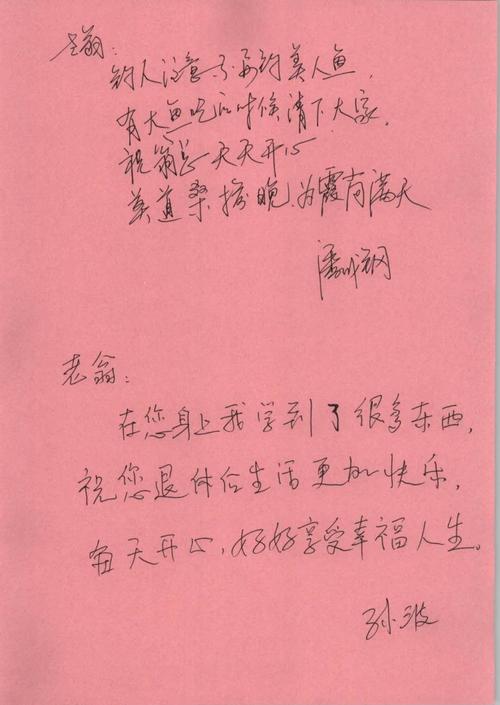 老翁:
钓人注意了不再钓美人鱼,
有大鱼吃的时候请下大家,
祝翁总天天开心
莫道桑榆晚,为霞尚满天
潘成钢
老翁:
在您身上我学到了很多东西,
祝您退休后生活更加快乐,
每天开心,好好享受幸福人生。
孙波